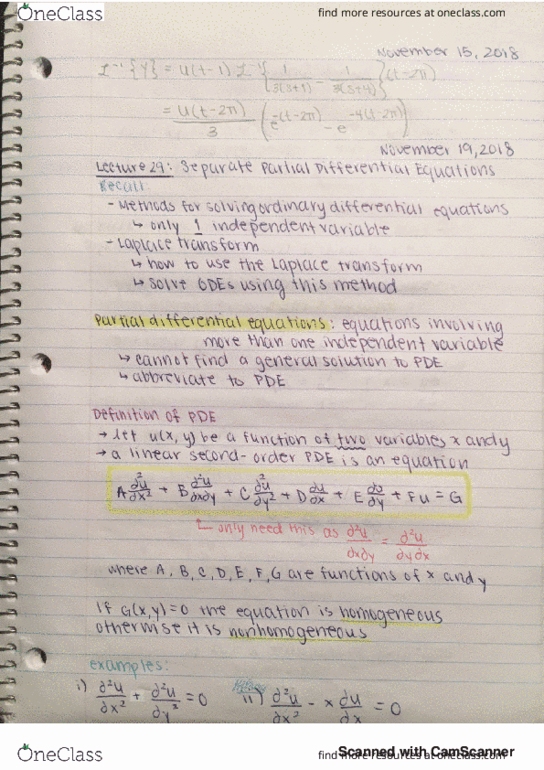 OneClass
find more resources at oneclass.com
November 15, 2018
ℒ⁻¹{Y} = u(t-1) ℒ⁻¹{1/3(s+1) - 1/3(s+4)}(t-2π)
= u(t-2π)/3 (e^-(t-2π) - e^-4(t-2π))
November 19, 2018
Lecture 29: Separate Partial Differential Equations
Recall:
- Methods for solving ordinary differential equations
↳ only 1 independent variable
- Laplace transform
↳ how to use the Laplace transform
↳ solve ODEs using this method
Partial differential equations: equations involving
more than one independent variable
↳ cannot find a general solution to PDE
↳ abbreviate to PDE
Definition of PDE
→ let u(x, y) be a function of two variables x and y
→ a linear second-order PDE is an equation
A ∂²u/∂x² + B ∂²u/∂x∂y + C ∂²u/∂y² + D ∂u/∂x + E ∂u/∂y + Fu = G
only need this as ∂²u/∂x∂y = ∂²u/∂y∂x
where A, B, C, D, E, F, G are functions of x and y
If G(x,y)=0 the equation is homogeneous
otherwise it is nonhomogeneous
examples:
i) ∂²u/∂x² + ∂²u/∂y² = 0 ii) ∂²u/∂x² - x ∂u/∂x = 0
OneClass
find more resources at oneclass.com
Scanned with CamScanner